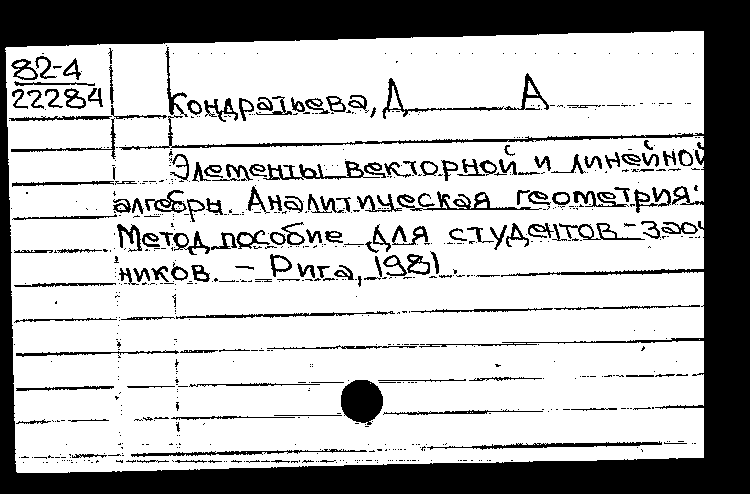 82-4
22284
Кондратьева, Д А
Элементы векторной и линейной
алгебры. Аналитическая геометрия:
Метод. пособие для студентов-заоч
ников. – Рига, 1981.